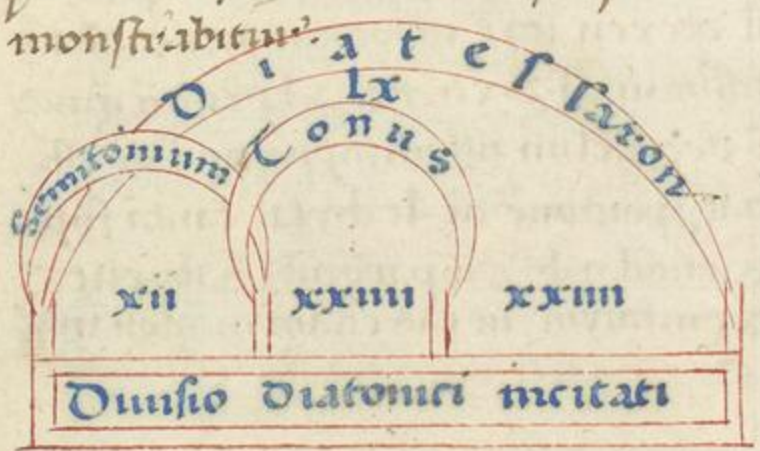 monstrabitur.
Diatessaron
lx
Semitonium Tonus
xii xxiiii xxiiii
Diuisio diatonici incitati